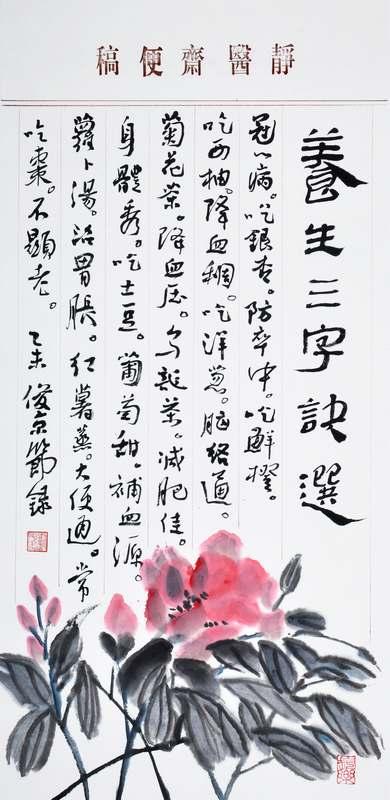 靜醫齋便稿
養生三字訣選
冠心病。吃銀杏。防卒中。吃鮮橙。
吃西柚。降血稠。吃洋葱。腦絡通。
菊花茶。降血压。乌龍茶。減肥佳。
身體秀。吃土豆。葡萄甜。補血源。
蘿卜湯。治胃脹。红薯蒸。大便通。常
吃棗。不顯老。乙未 俊京節録